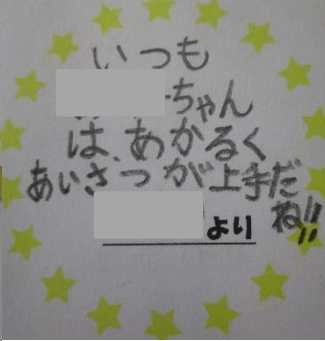 いつも
ーちゃん
は、あかるく
あいさつが上手だ
ね!!
より